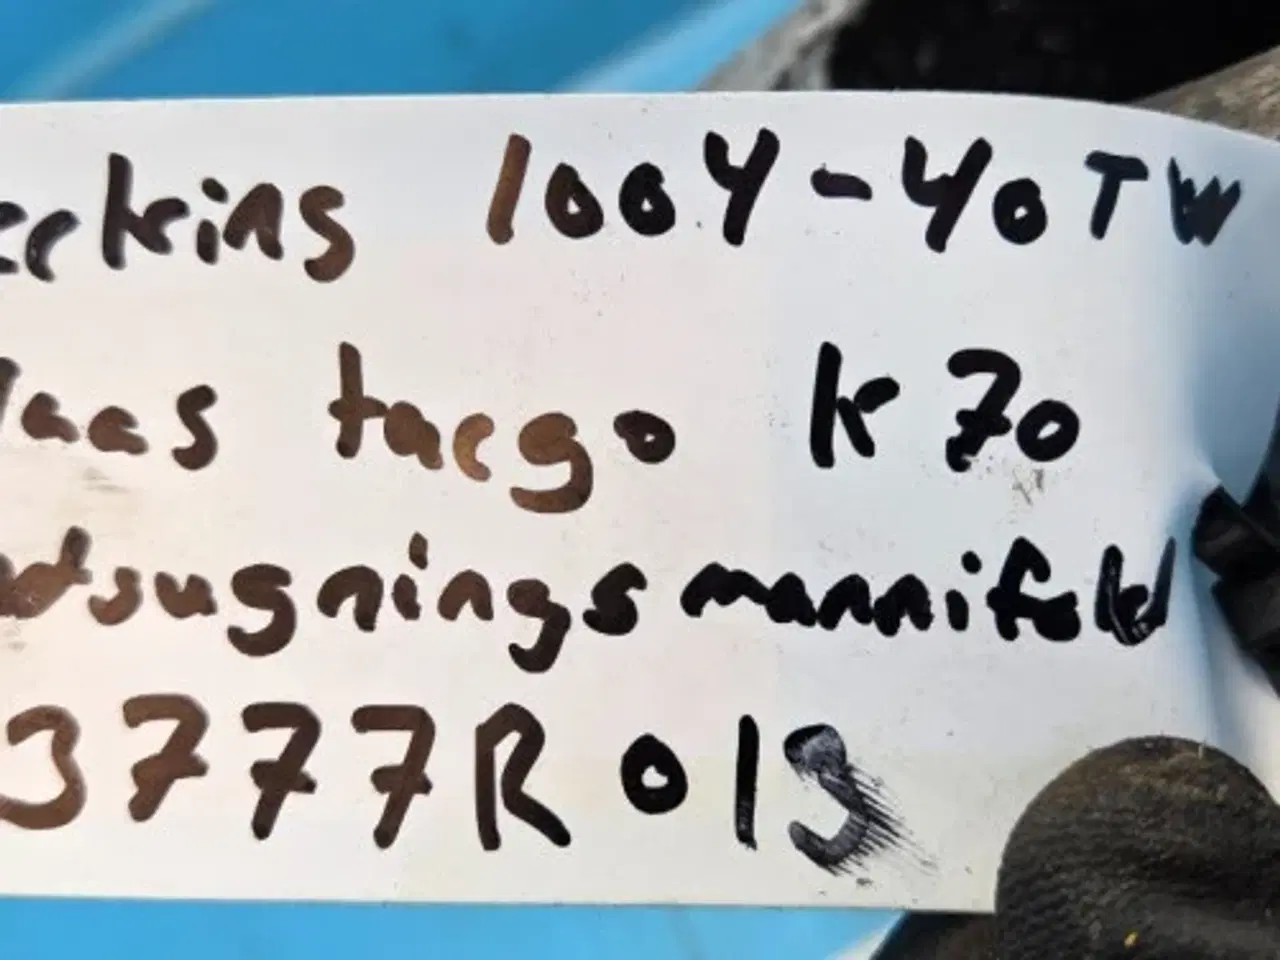 erkins 1004-40TW
laas targo K70
dsugningsmannifold
3777R01